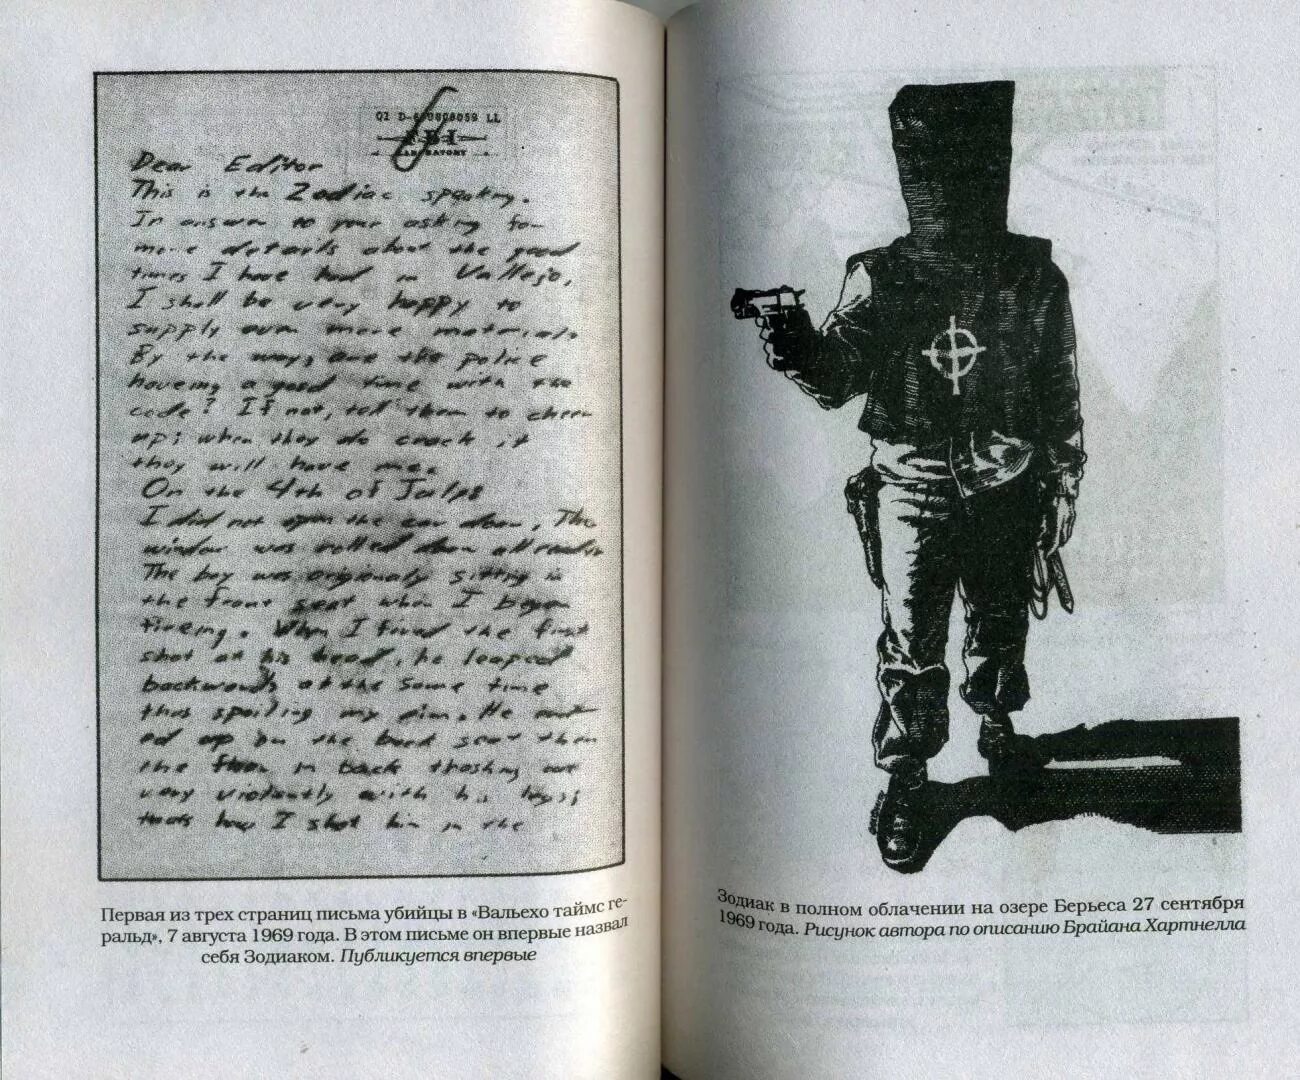 Q2 D-6 0808059 LL
FBI
LABORATORY
Dear Editor
This is the Zodiac speaking.
In answer to your asking for
more details about the good
times I have had in Vallejo,
I shall be very happy to
supply even more material.
By the way, are the police
haveing a good time with the
code? If not, tell them to cheer
up; when they do crack it
they will have me.
On the 4th of July
I did not open the car door, The
window was rolled down all ready
The boy was origionaly sitting in
the front seat when I began
fireing. When I fired the first
shot at his head, he leaped
backwards at the same time
thus spoiling my aim. He end-
ed up on the back seat then
the floor in back thashing out
very violently with his legs;
thats how I shot him in the
Первая из трех страниц письма убийцы в «Вальехо таймс ге-
ральд», 7 августа 1969 года. В этом письме он впервые назвал
себя Зодиаком. Публикуется впервые
Зодиак в полном облачении на озере Берьеса 27 сентября
1969 года. Рисунок автора по описанию Брайана Хартнелла